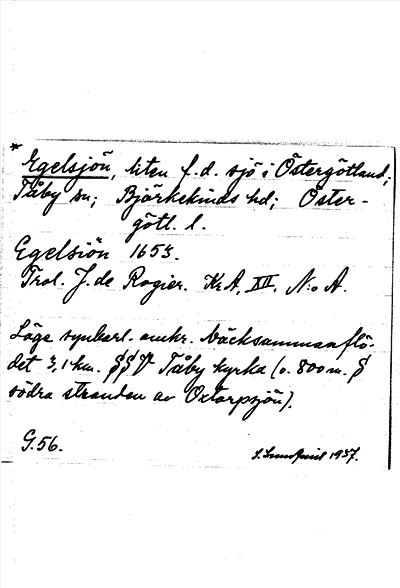 * Egelsjön, liten f.d. sjö i Östergötland;
Tåby sn; Björkekinds hd; Öster-
götl. l.
Egelsiön 1653.
Trol. J. de Rogier. KrA, XII, N:o A.
Låge synbarl. omkr. bäcksammanflö-
det 3,1 km. SSV Tåby kyrka (o. 800 m. S
södra stranden av Oxtorpsjön).
G. 56.
1937.